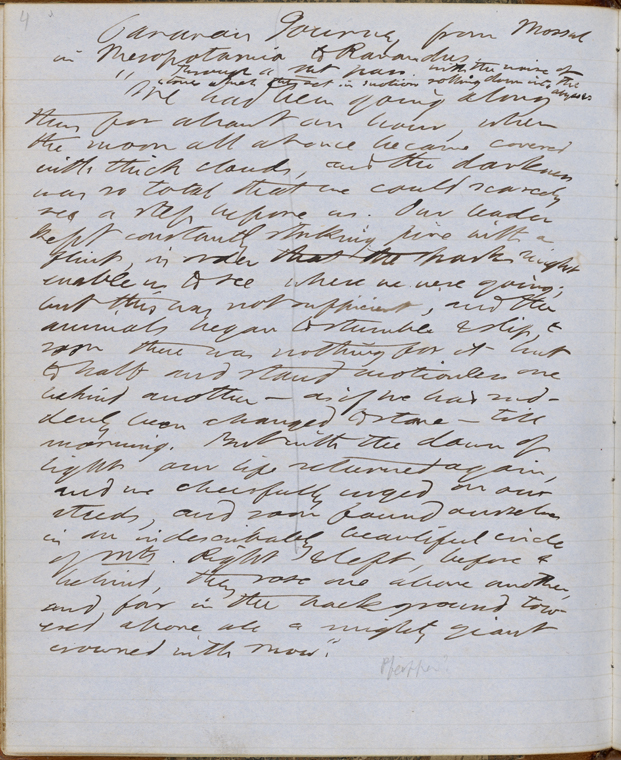 4
Caravan Journey from Mossul
in Mesopotamia to Ravandus
through a pass with the noise of the
stones which set in motion rolling down into abysses
"We had been going along
thus for about an hour, when
the moon all at once became covered
with thick clouds, and the darkness
was so total that we could scarcely
see a step before us. Our leader
kept constantly striking fire with a
flint, in order that the sparks might
enable us to see where we were going;
but this was not sufficient, and the
animals began to stumble & slip, &
soon there was nothing for it but
to halt and stand motionless one
behind another – as if we had sud-
denly been changed to stone – till
morning. But with the dawn of
light our life returned again,
and we cheerfully urged on our
steeds, and soon found ourselves
in an indescribably beautiful circle
of mts. Right & left, before &
behind, they rose one above another,
and far in the background tow-
ered above all a mighty giant
crowned with snow."
Pfeiffer